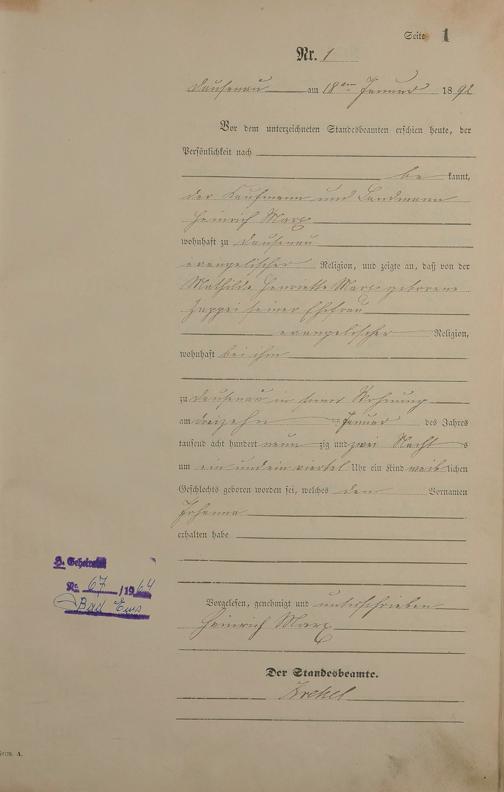 Seite 1
Nr. 1
Dausenau am 18ten Januar 1892
Vor dem unterzeichneten Standesbeamten erschien heute, der
Persönlichkeit nach
be kannt,
der Kaufmann und Landmann
Heinrich Marx
wohnhaft zu Dausenau
evangelischer Religion, und zeigte an, daß von der
Mathilde Henriette Marx geborene
seiner Ehefrau
evangelischer Religion,
wohnhaft bei ihm
zu Dausenau in seiner Wohnung
am dreizehn Januar des Jahres
tausend acht hundert neun zig und zwei Nacht s
um ein und ein viertel Uhr ein Kind weib lichen
Geschlechts geboren worden sei, welches den Vornamen
Johanna
erhalten habe
Vorgelesen, genehmigt und unterschrieben
Heinrich Marx
Der Standesbeamte.
Nr. 67 /1964
Bad Ems
A.